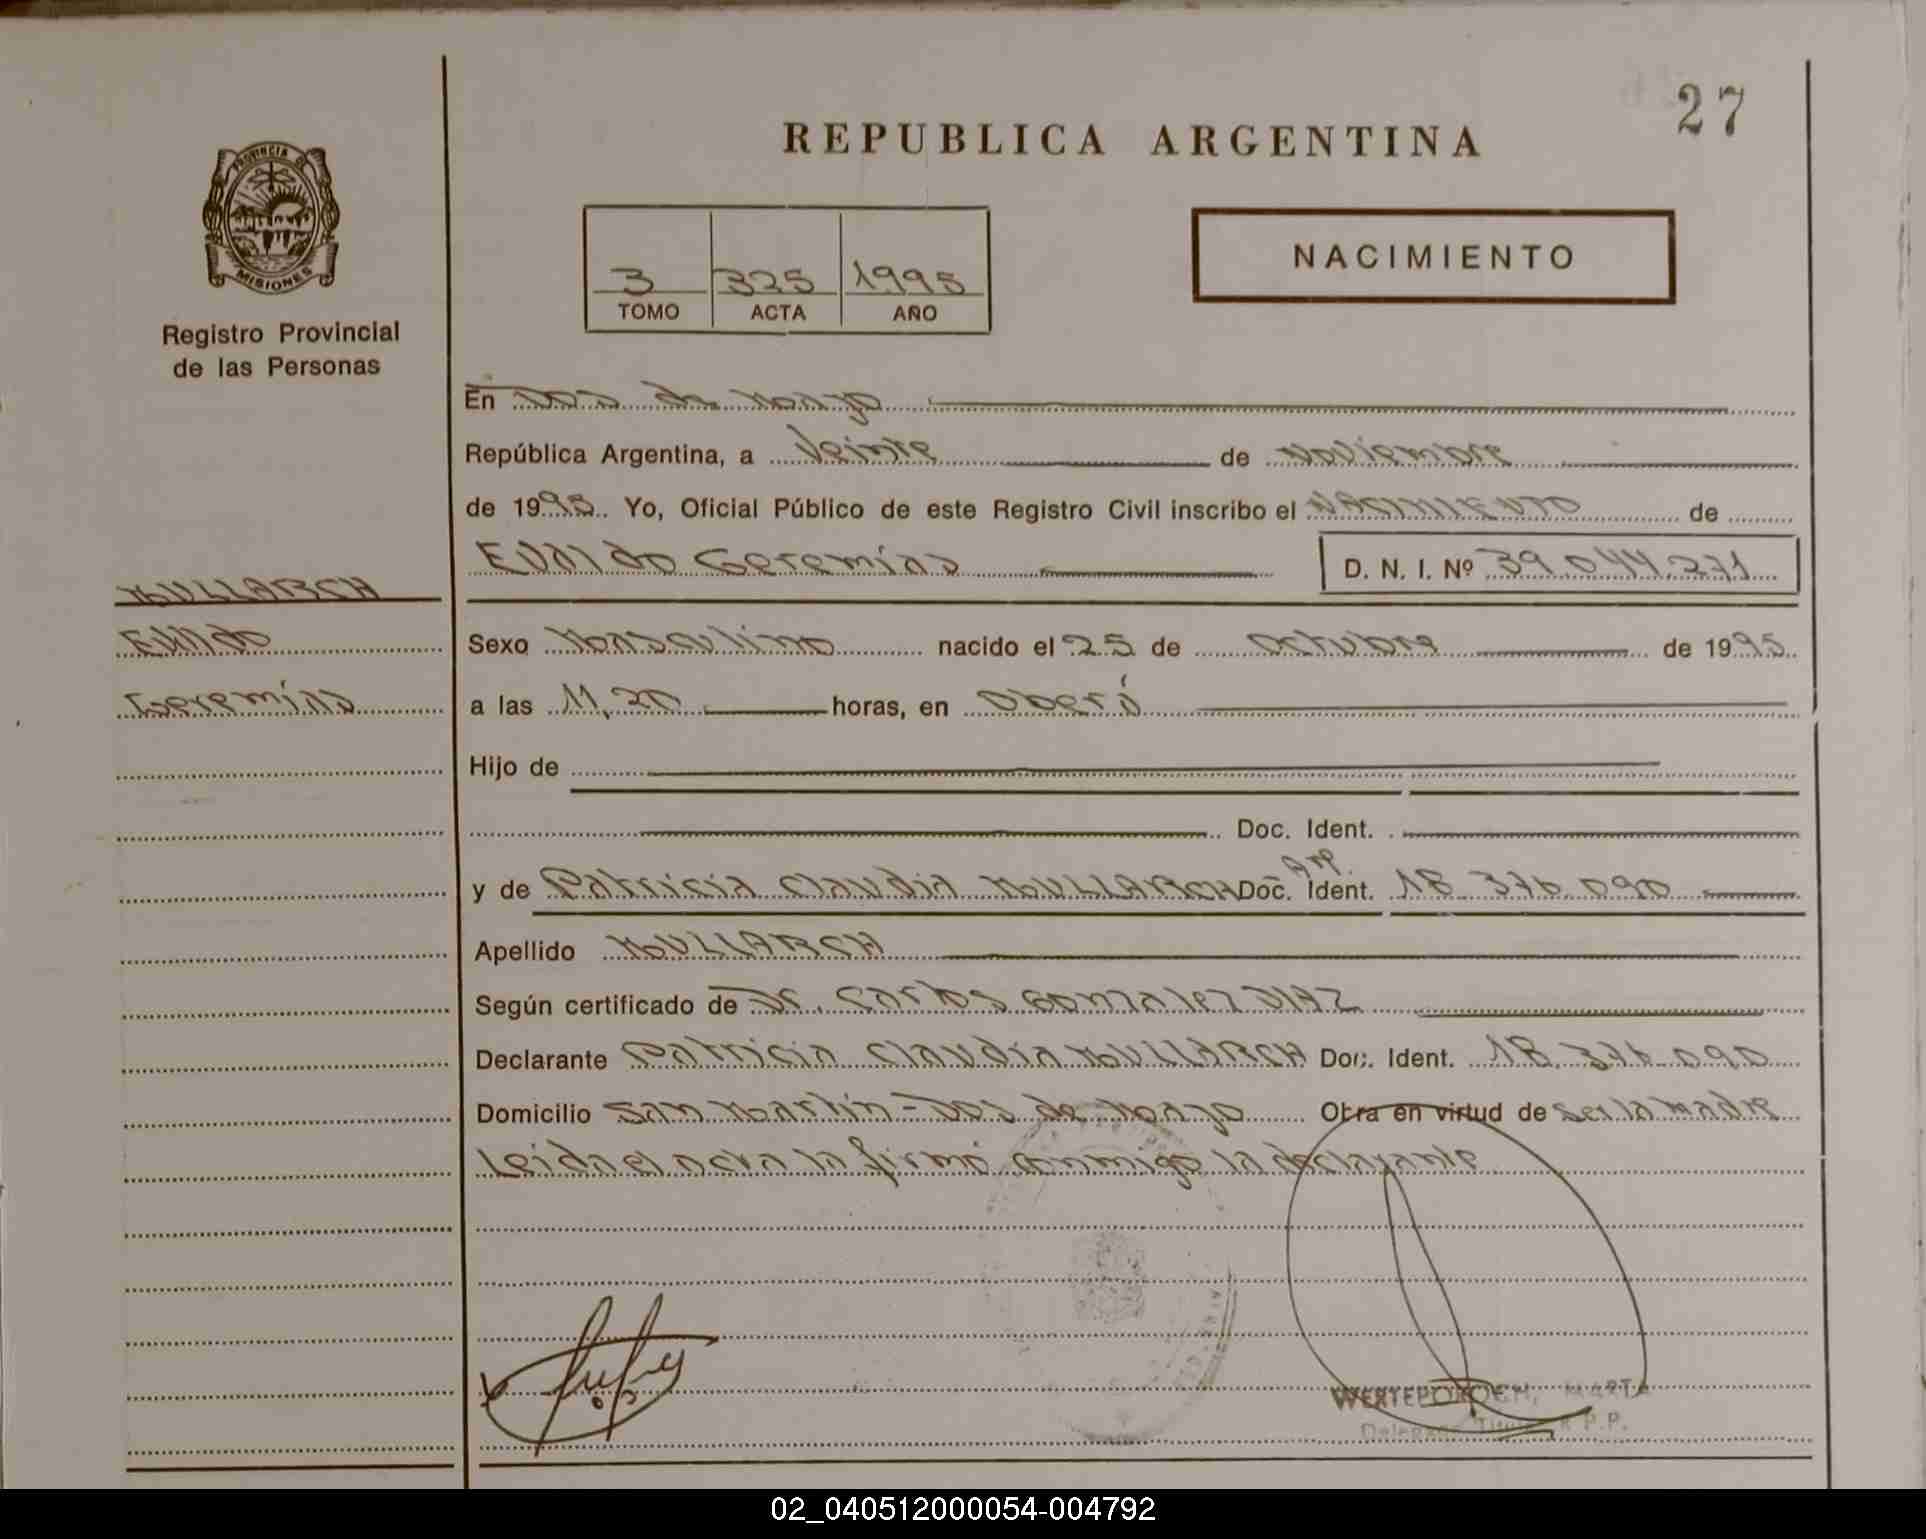 27
REPUBLICA ARGENTINA
PROVINCIA DE
MISIONES
Registro Provincial
de las Personas
3 325 1995
TOMO ACTA AÑO
NACIMIENTO
En Dos de Mayo
República Argentina, a Veinte de Noviembre
de 1995. Yo, Oficial Público de este Registro Civil inscribo el NACIMIENTO de
Evaldo Geremías D. N. I. Nº 39.044.271
MULLARCH
Evaldo
Geremías
Sexo Masculino nacido el 25 de Octubre de 1995
a las 11,20 horas, en Oberá
Hijo de
Doc. Ident.
Arg.
y de Patricia Claudia MULLARCH Doc. Ident. 18.376.090
Apellido MULLARCH
Según certificado de Dr. Carlos Gonzalez DIAZ
Declarante Patricia Claudia MULLARCH Doc. Ident. 18.376.090
Domicilio San Martín - Dos de Mayo Obra en virtud de ser la madre
Leida el acta la firmó conmigo la declarante
MARTA
02_040512000054-004792